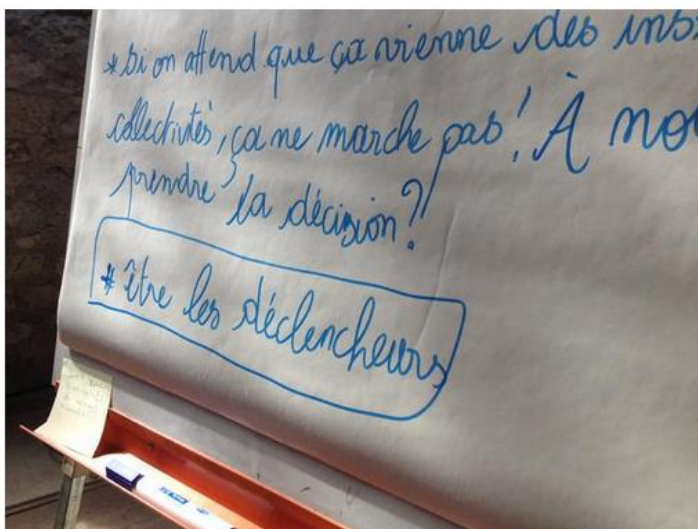 * Si on attend que ça vienne des ins
collectivités, ça ne marche pas! À nou
prendre la décision?
* être les déclencheurs